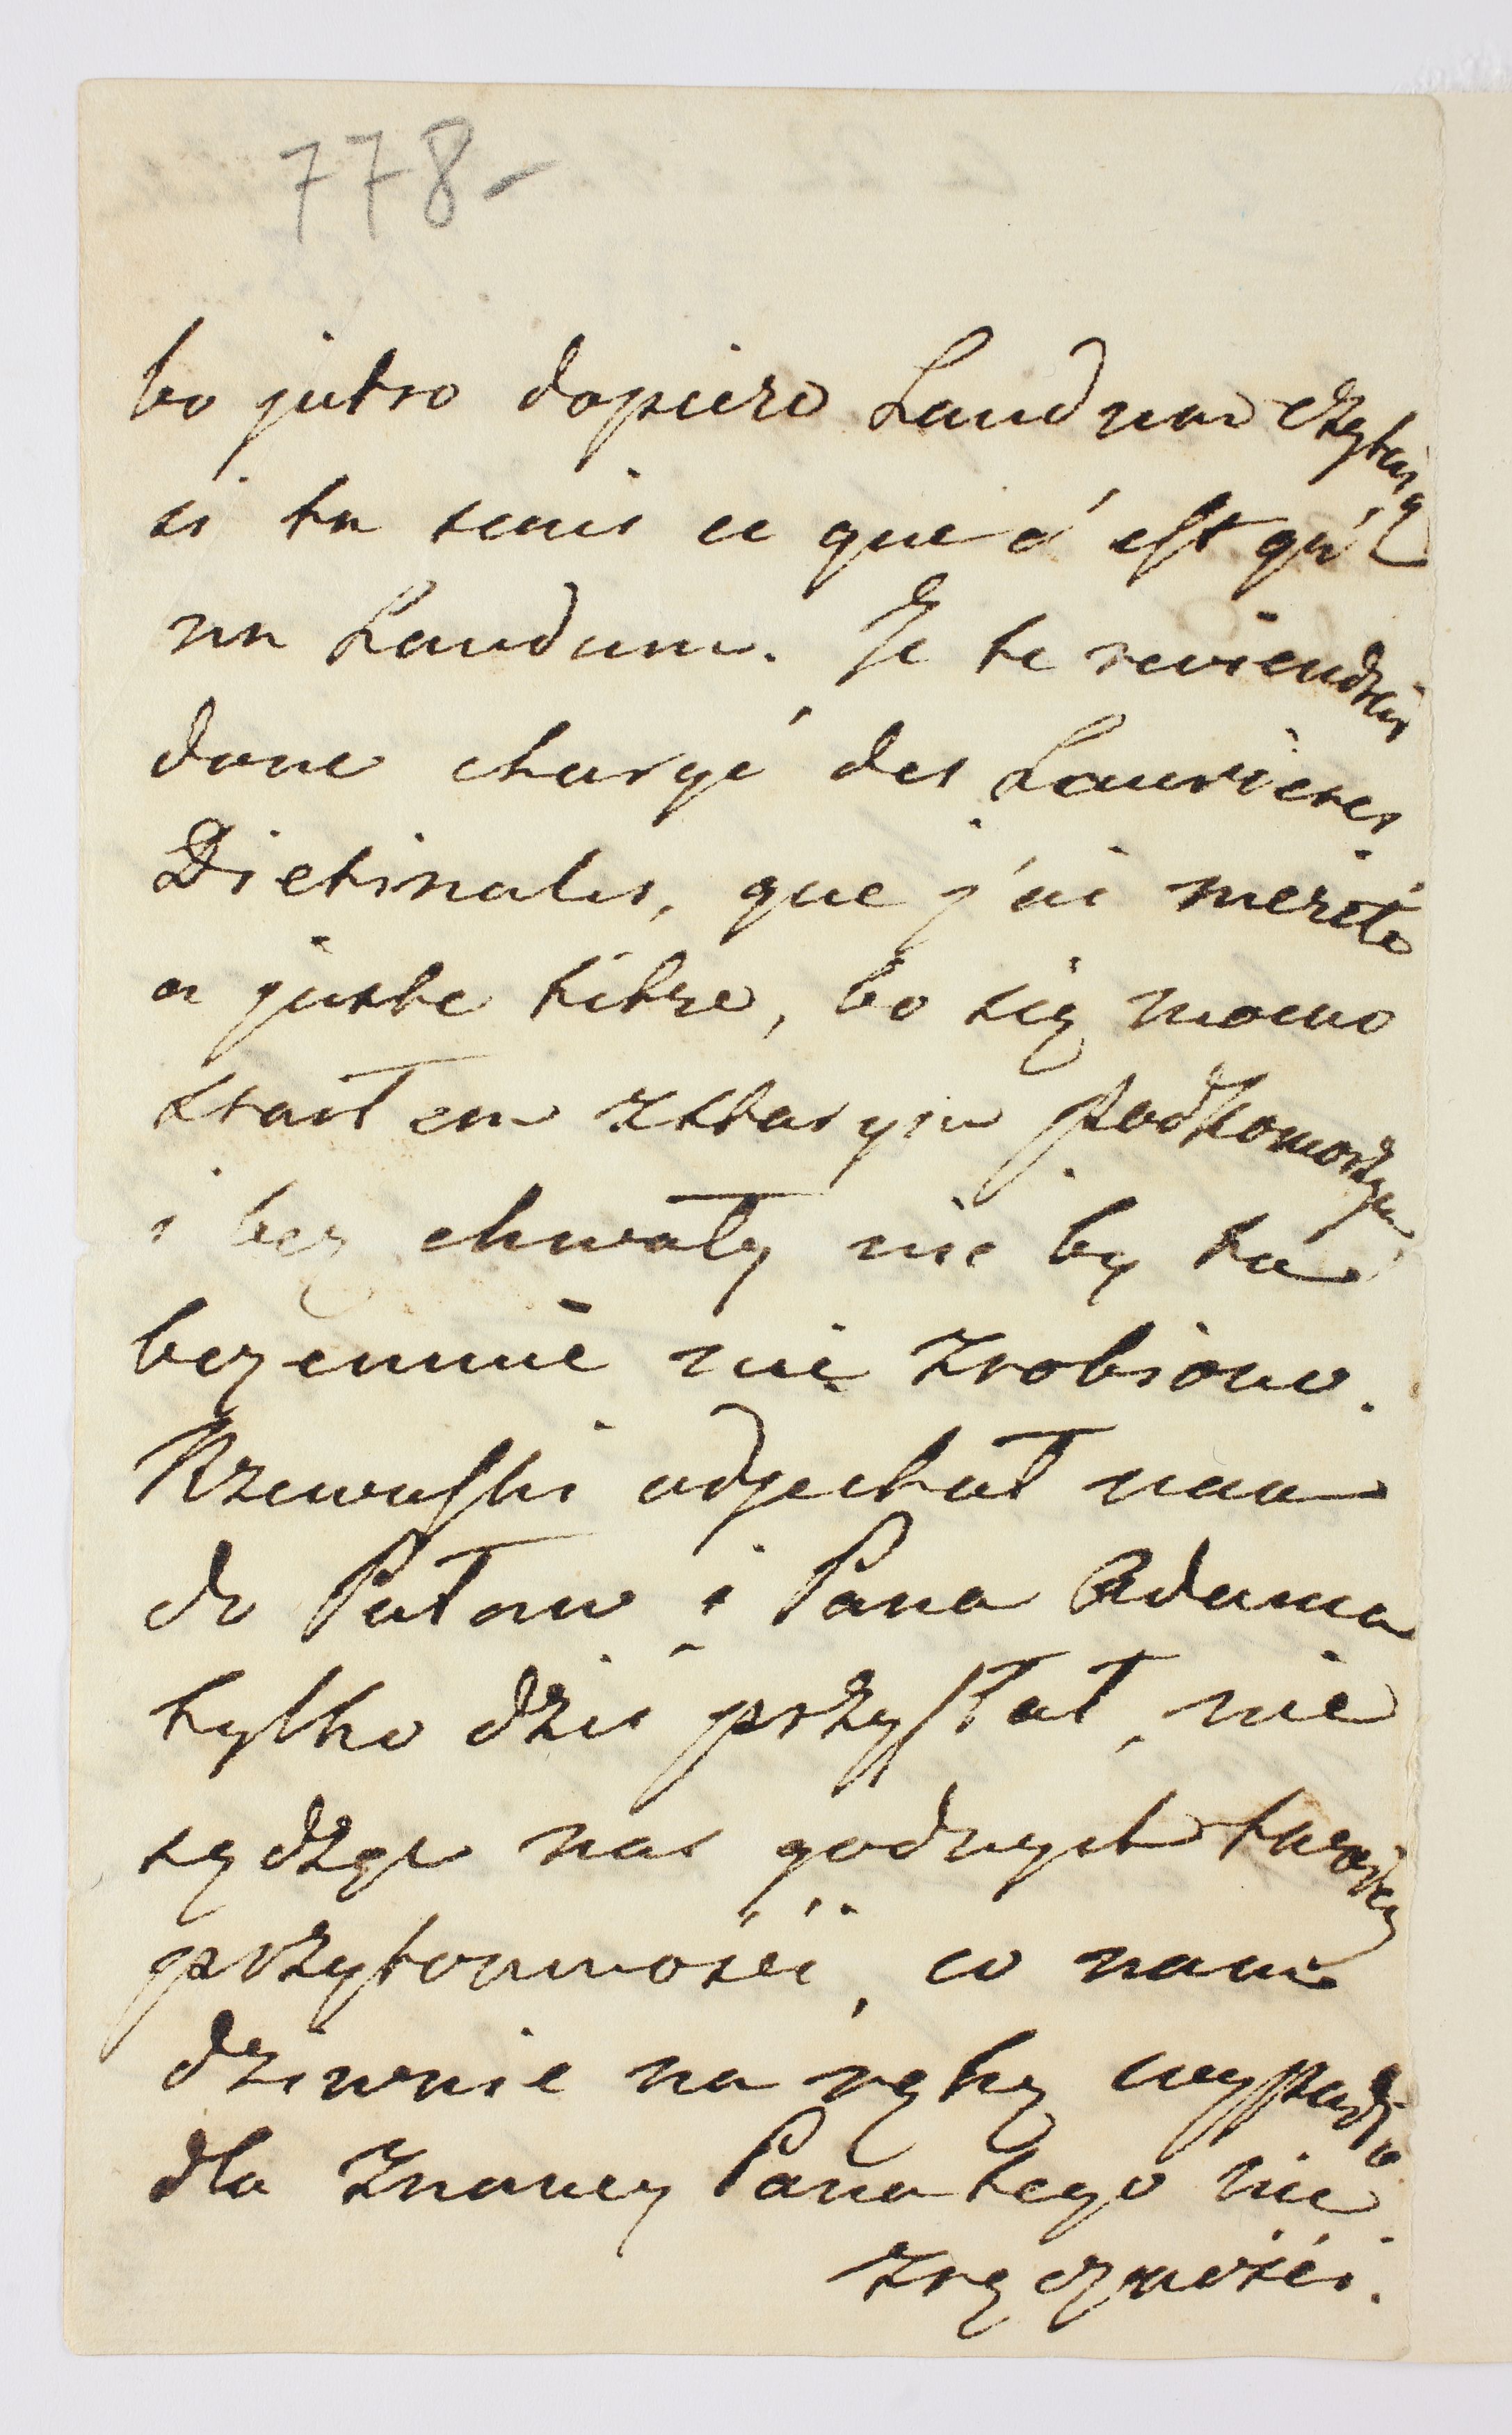 778-
bo jutro dopiero Laudum czytają
si tu scais ce que c'est qu'
un Laudum. Je te reviendrai
donc chargé des Lauriers
Dietinales, que j'ai merité
a juste titre, bo się mocno
starłem z starym podkomorzym
i bez chwały nic by tu
bezemnie nie zrobiono.
Rzewuski odjechał nam
do Puław i Pana Adama
tylko dziś przysłał, nie
sądząc nas godnych
przytomności, co nam
dziwnie na rękę wypadło
dla znaney Pana tego nie
zręczności.